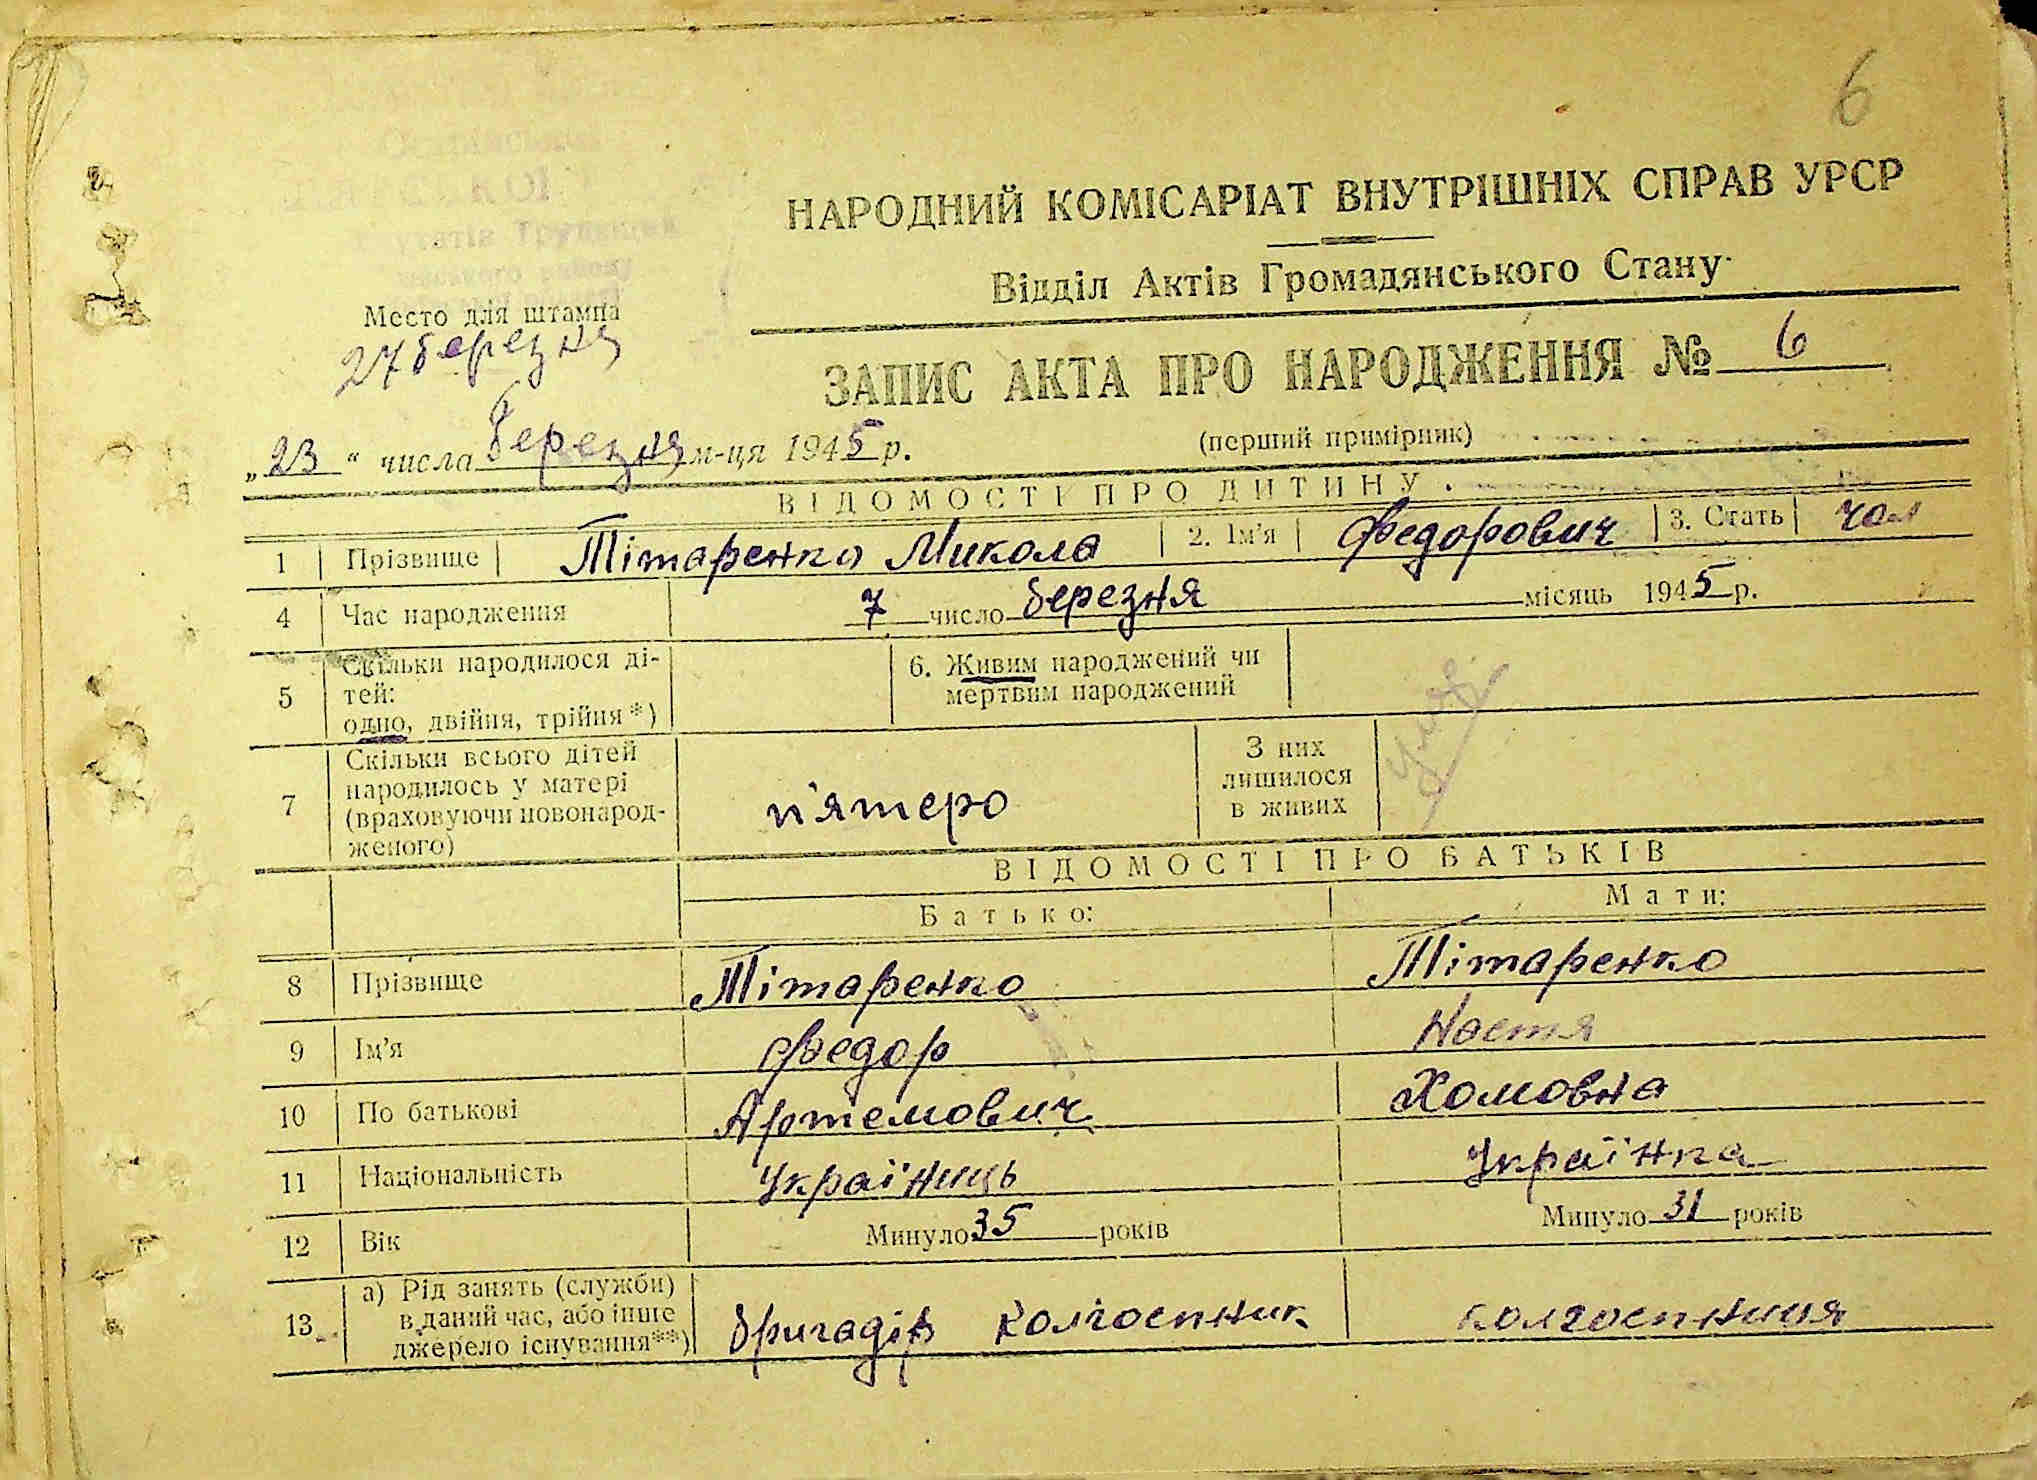 6
НАРОДНИЙ КОМІСАРІАТ ВНУТРІШНІХ СПРАВ УРСР
Відділ Актів Громадянського Стану
Место для штампа
27 березня
ЗАПИС АКТА ПРО НАРОДЖЕННЯ № 6
(перший примірник)
„23“ числа березня м-ця 1945 р.
ВІДОМОСТІ ПРО ДИТИНУ
1 Прізвище Тітаренко Микола 2. Ім'я Федорович 3. Стать чол
4 Час народження 7 число березня місяць 1945 р.
5 Скільки народилося ді-
тей:
одно, двійня, трійня*)
6. Живим народжений чи
мертвим народжений
7 Скільки всього дітей
народилось у матері
(враховуючи новонарод-
женого)
п'ятеро
З них
лишилося
в живих
ВІДОМОСТІ ПРО БАТЬКІВ
Батько: Мати:
8 Прізвище Тітаренко Тітаренко
9 Ім'я Федор Настя
10 По батькові Артемович Хомовна
11 Національність Україниць Українка
12 Вік Минуло 35 років Минуло 31 років
13 а) Рід занять (служби)
в даний час, або інше
джерело існування**)
бригадів колгоспник колгоспниця